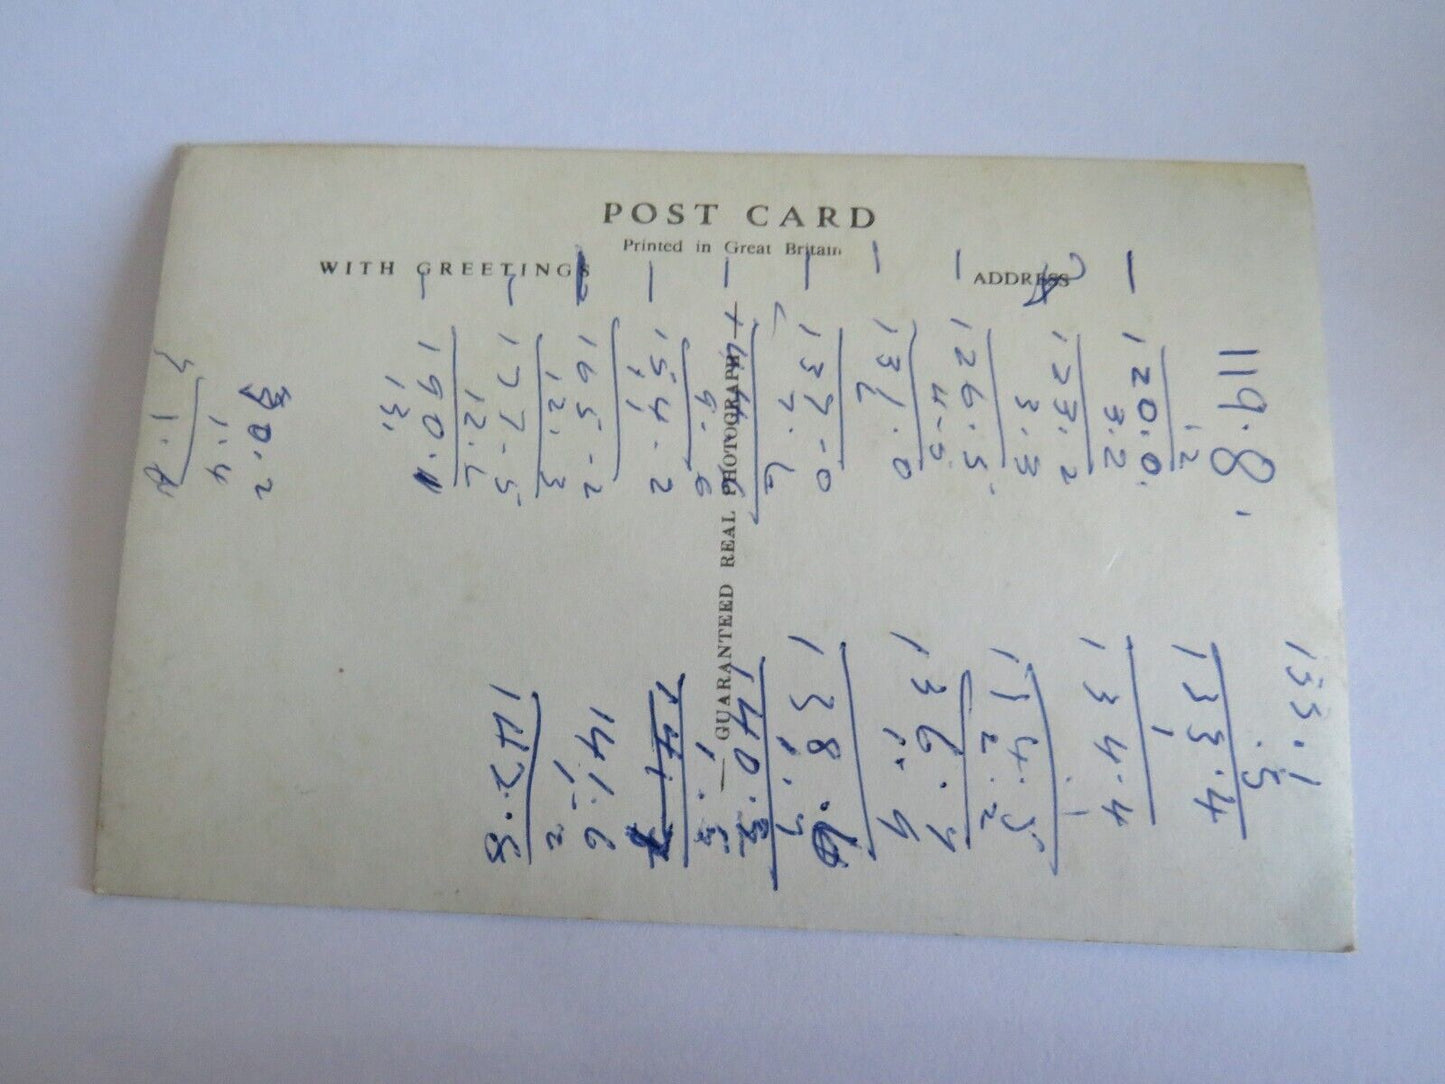 POST CARD
Printed in Great Britain
WITH GREETINGS
ADDRESS
— GUARANTEED REAL PHOTOGRAPH —
119.8
.2
120.0
3.2
123.2
3.3
126.5
4.5
131.0
137.0
9.6
154.2
11
165.2
12.3
177.5
190.1
13
30.2
1.4
133.1
.5
133.4
1
134.4
.1
134.5
2.2
136.7
1.9
138.6
1.7
140.3
1.3
141.6
1.2
142.8